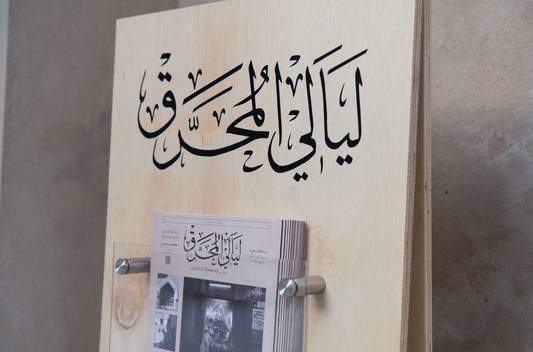 ليالي المحرّق
ليالي المحرّق
Layali Al Muharraq